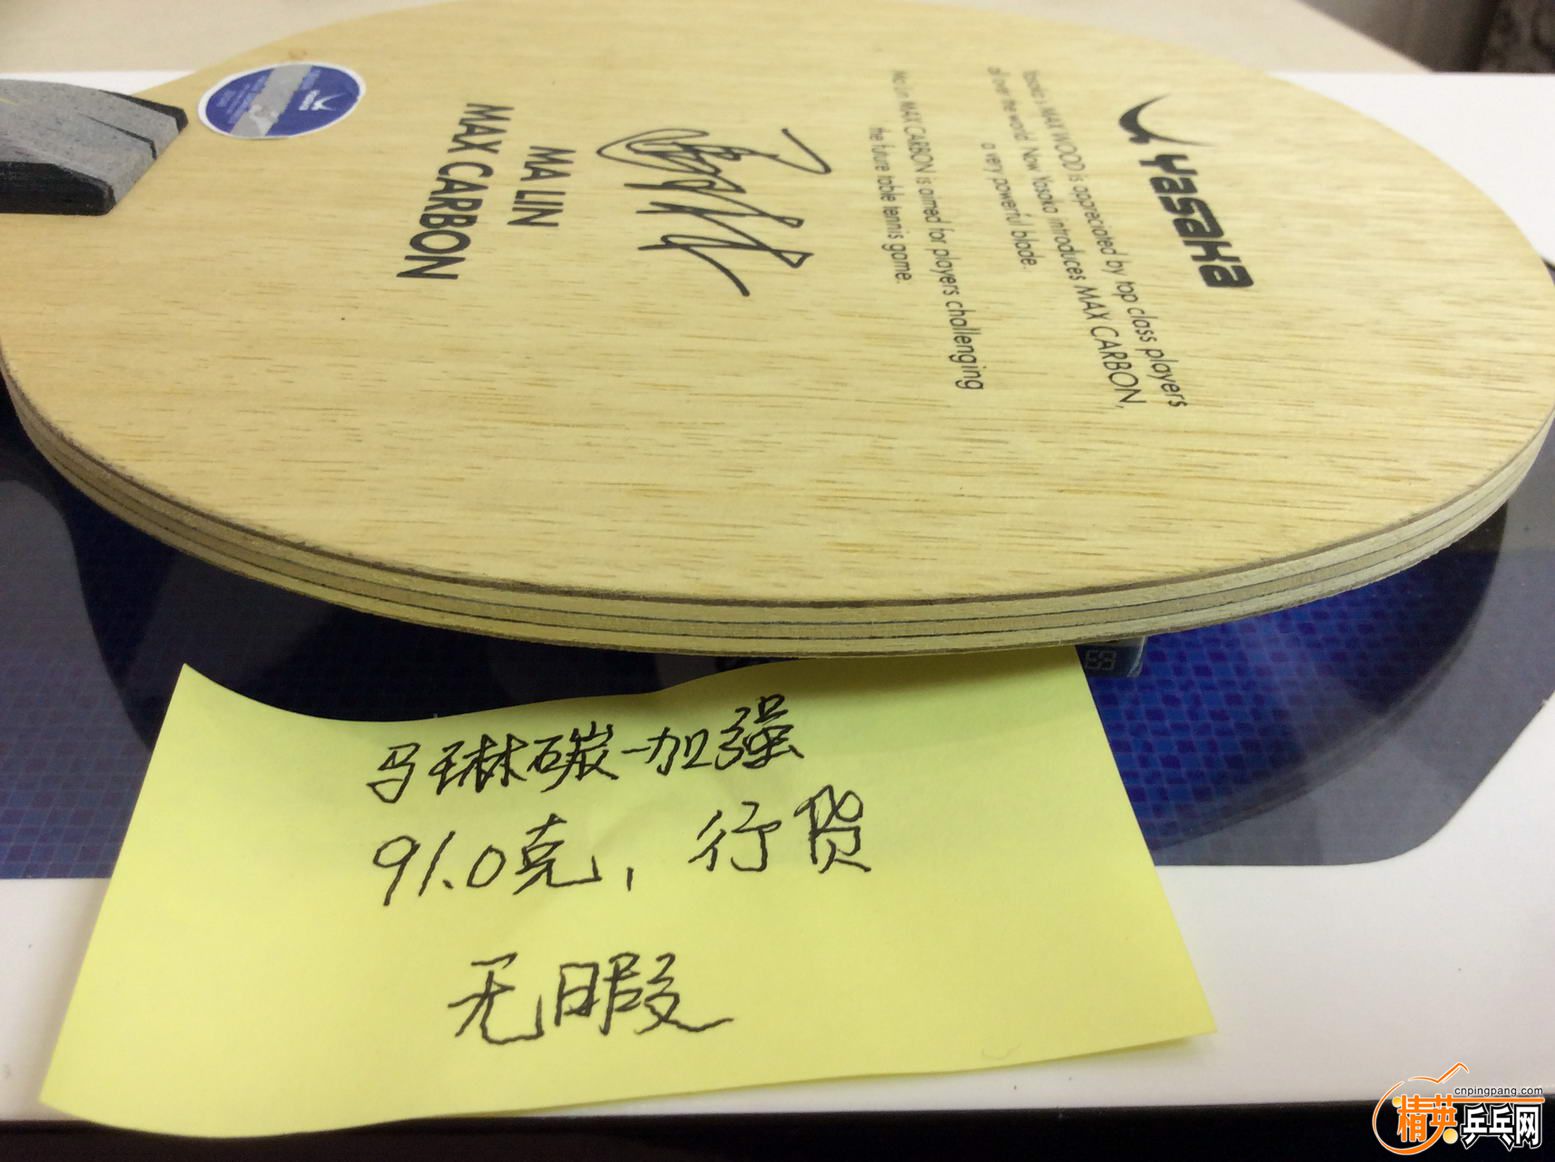 Yasaka
Yasaka's MAX WOOD is appreciated by top class players
all over the world. Now Yasaka introduces MAX CARBON,
a very powerful blade.
Ma Lin MAX CARBON is aimed for players challenging
the future table tennis game.
MA LIN
MAX CARBON
马琳碳-加强
91.0克, 行货
无暇
cnpingpang.com
精英乒乓网